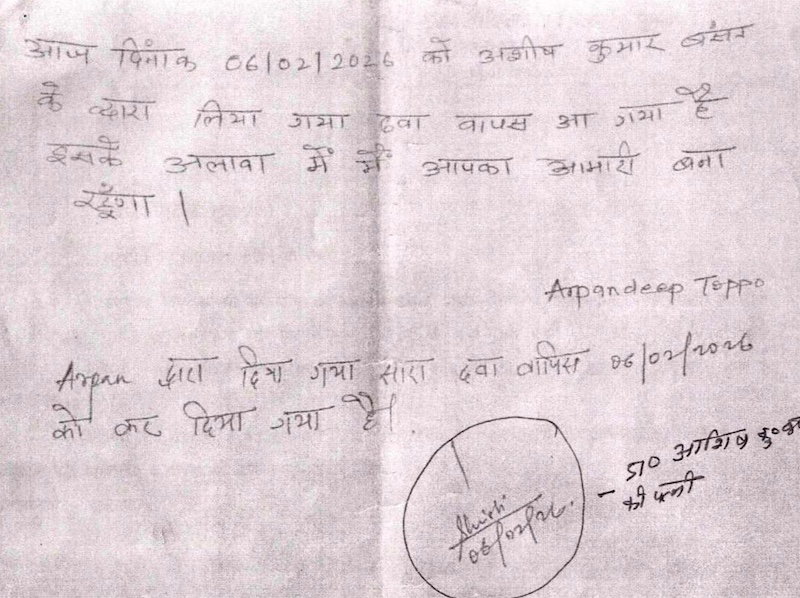 आज दिनांक 06/02/2026 को अशीष कुमार बंसल
के द्वारा लिया गया दवा वापस आ गया है
इसके अलावा में मैं आपका आभारी बना
रहूँगा |
Arpandeep Toppo
Arpan द्वारा दिया गया सारा दवा वापिस 06/02/2026
को कर दिया गया है।
06/02/26.
- डा० आशिष कु०
की पत्नी